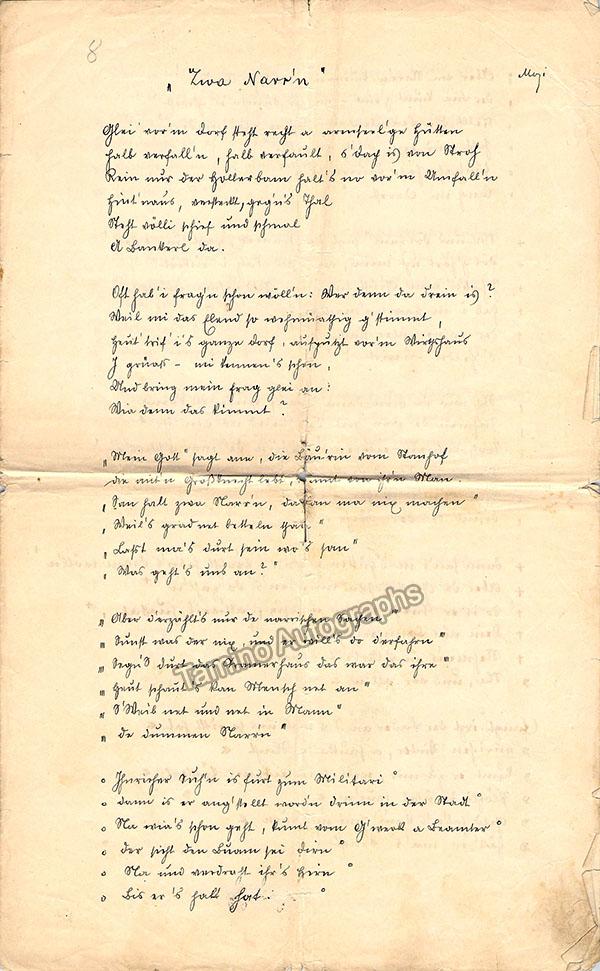 8
"Zwa Narr'n"
Glei vor'm Dorf steht recht a armseel'ge Hütten
halb verfall'n, halb verfault, s'Dach is von Stroh
Rein nur der Hollerbam halt's no vor'm Umfall'n
Hint'naus, versteckt, geg'n's Thal
Steht völli schief und schmal
A Bankerl da.
Oft hab' i frag'n schon wöll'n: Wer denn da drein is?
Weil mi das Elend so wehmüathig g'stimmt,
Heut' trif' i's ganze Dorf, aufputzt vor'm Wirthshaus
I grüass - mi kennen's schon,
Und bring mein Frag glei an:
Wia denn das kimmt?
"Mein Gott" sagt ane, die Bäu'rin vom Stanhof
die mit'n Großknecht lebt, von ihr'n Man.
"San halt zwa Narr'n, da kan ma nix machen"
"Weil's grad net betteln than"
"Lasst ma's durt sein wo's san"
"Was geht's uns an?"
"Aber d'erzählt's nur de narrischen Sachen"
"Sunst was der nix, und er will's do d'erfahrn"
"Segn'S durt das Summerhaus das war das ihre"
"Heut schaut's kan Mensch net an"
"S'Weib net und net in Mann"
"De dummen Narr'n"
Suh'n is furt zum Militari
dann is er ang'stellt word'n drinn in der Stadt
Na wia's schon geht, kumt vom G'werk a Beamter
der sicht den Buam sei Dirn
Na und verdraht ihr's Hirn
Bis er's halt hat.
Tamino Autographs